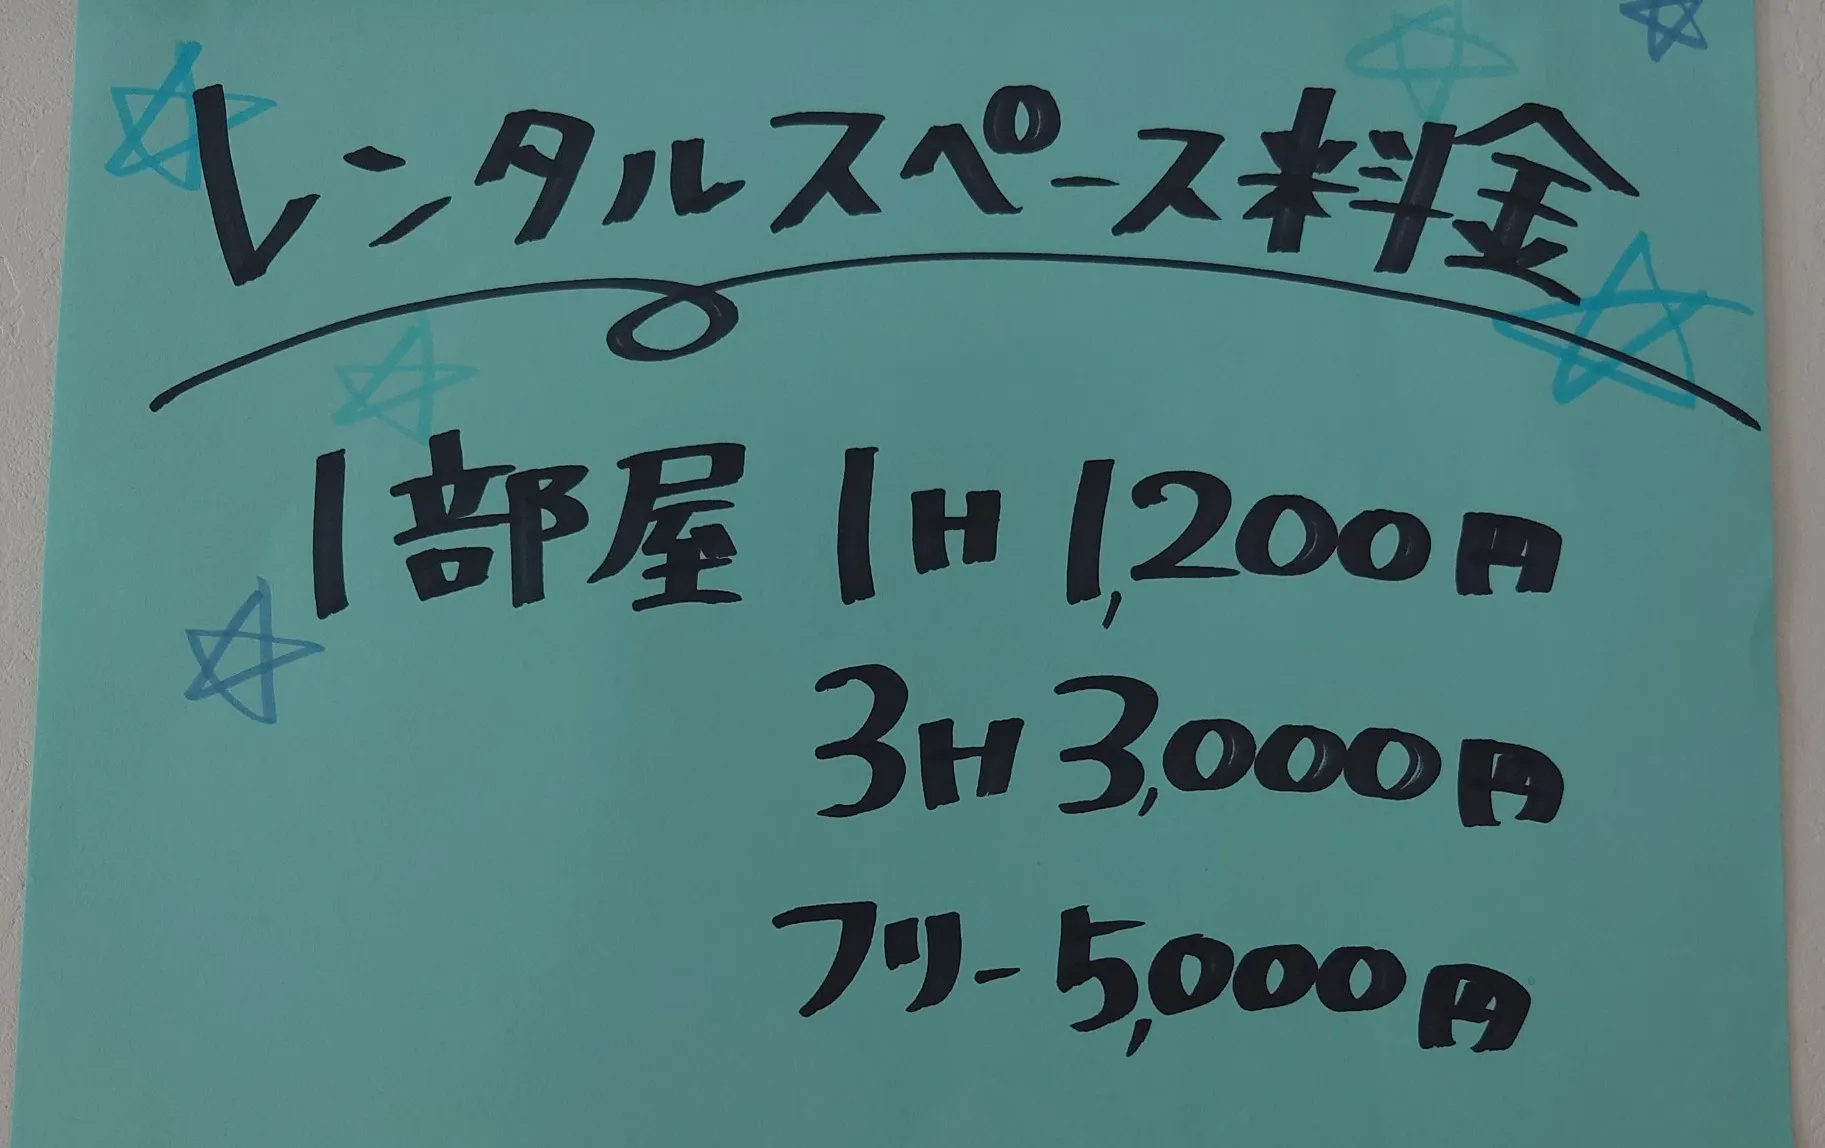 レンタルスペース料金
1部屋 1H 1,200円
3H 3,000円
フリー 5,000円